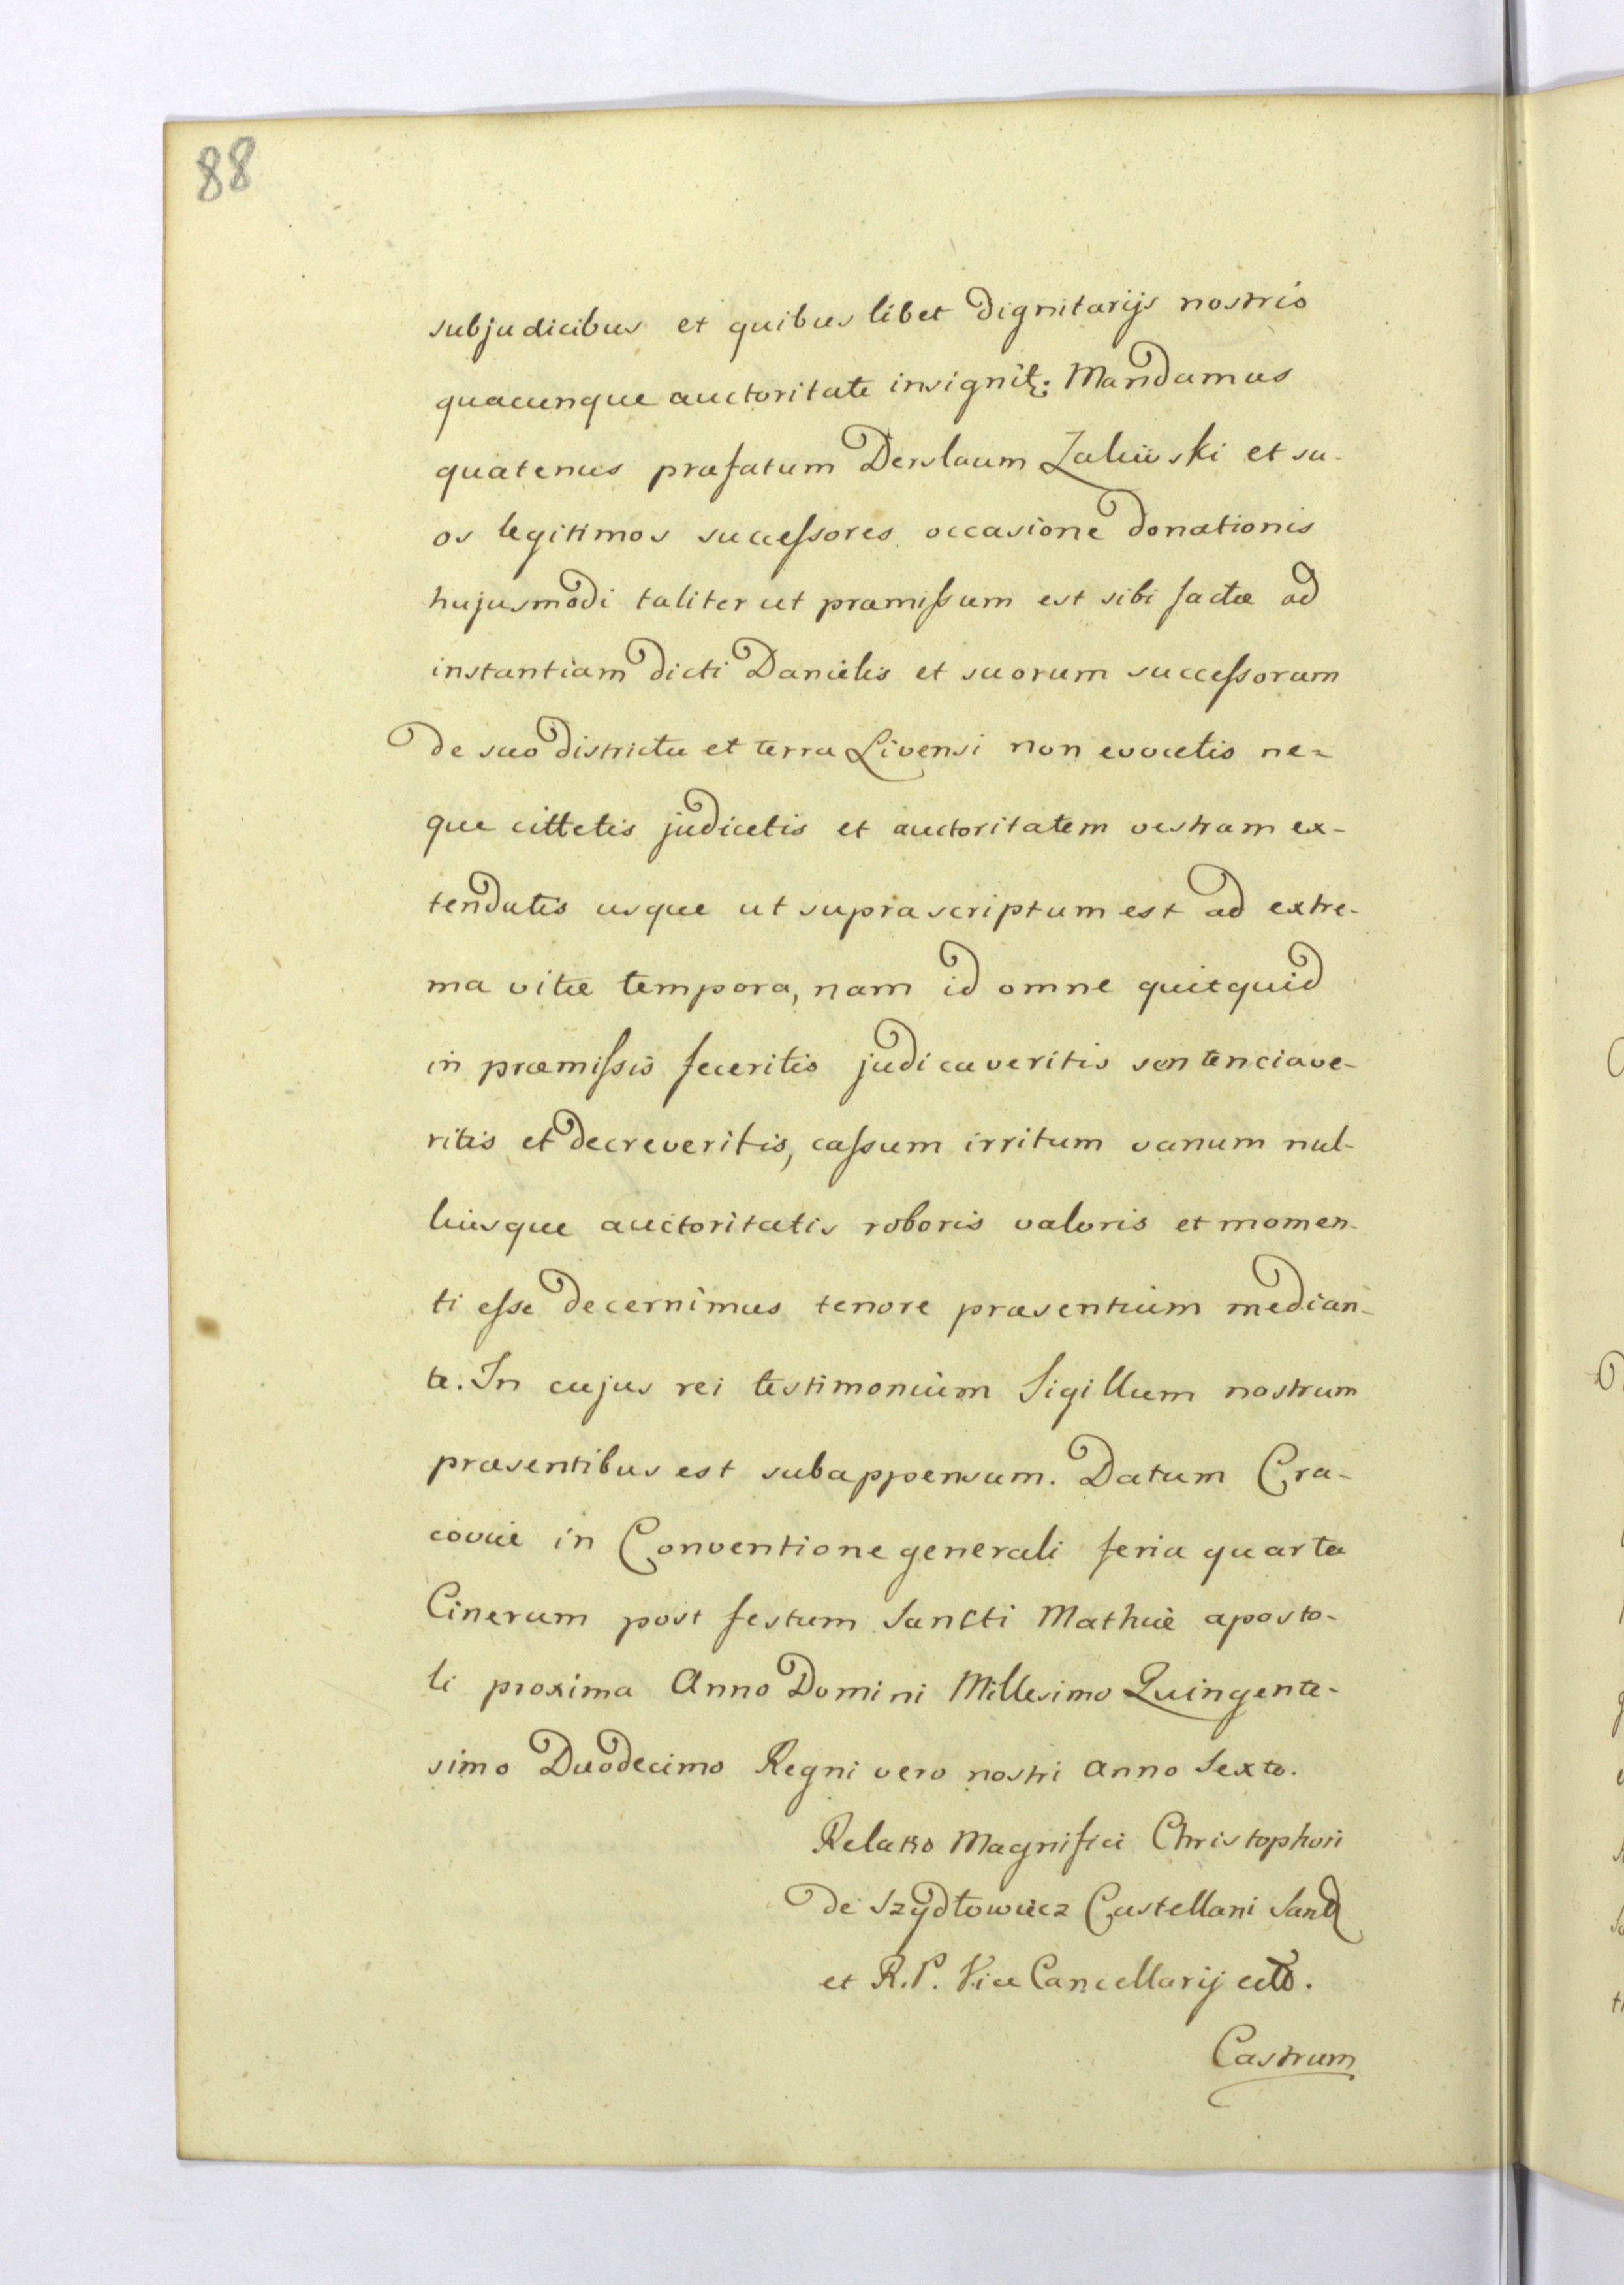 88
subjudicibus et quibus libet dignitarijs nostris
quacunque auctoritate insignit: Mandamus
quatenus præfatum Derslaum Zaliwski et su-
os legitimos successores occasione donationis
hujusmodi taliter ut præmissum est sibi factæ ad
instantiam dicti Danielis et suorum successorum
de suo districtu et terra Livensi non evocetis ne=
que cittetis judicetis et auctoritatem vestram ex-
tendatis usque ut supra scriptum est ad extre-
ma vitæ tempora, nam id omne quicquid
in præmissis feceritis judicaveritis sentenciave-
ritis et decreveritis, cassum irritum vanum nul-
liusque auctoritatis roboris valoris et momen-
ti esse decernimus tenore præsentium median-
te. In cujus rei testimonium Sigillum nostrum
præsentibus est subappensum. Datum Cra-
coviæ in Conventione generali feria quarta
Cinerum post festum Sancti Mathiæ aposto-
li proxima Anno Domini Millesimo Quingente-
simo Duodecimo Regni vero nostri anno Sexto.
Relatio Magnifici Christophori
de Szydłowiecz Castellani Sand
et R. P. Vice Cancellarij
Castrum